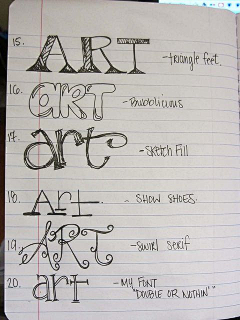 15. ART - triangle feet.
16. art - Bubblicious
17. art - Sketch Fill
18. Art. - SHOW SHOES.
19. ART - swirl serif
20. art - MY FONT
"DOUBLE OR NOTHIN'"